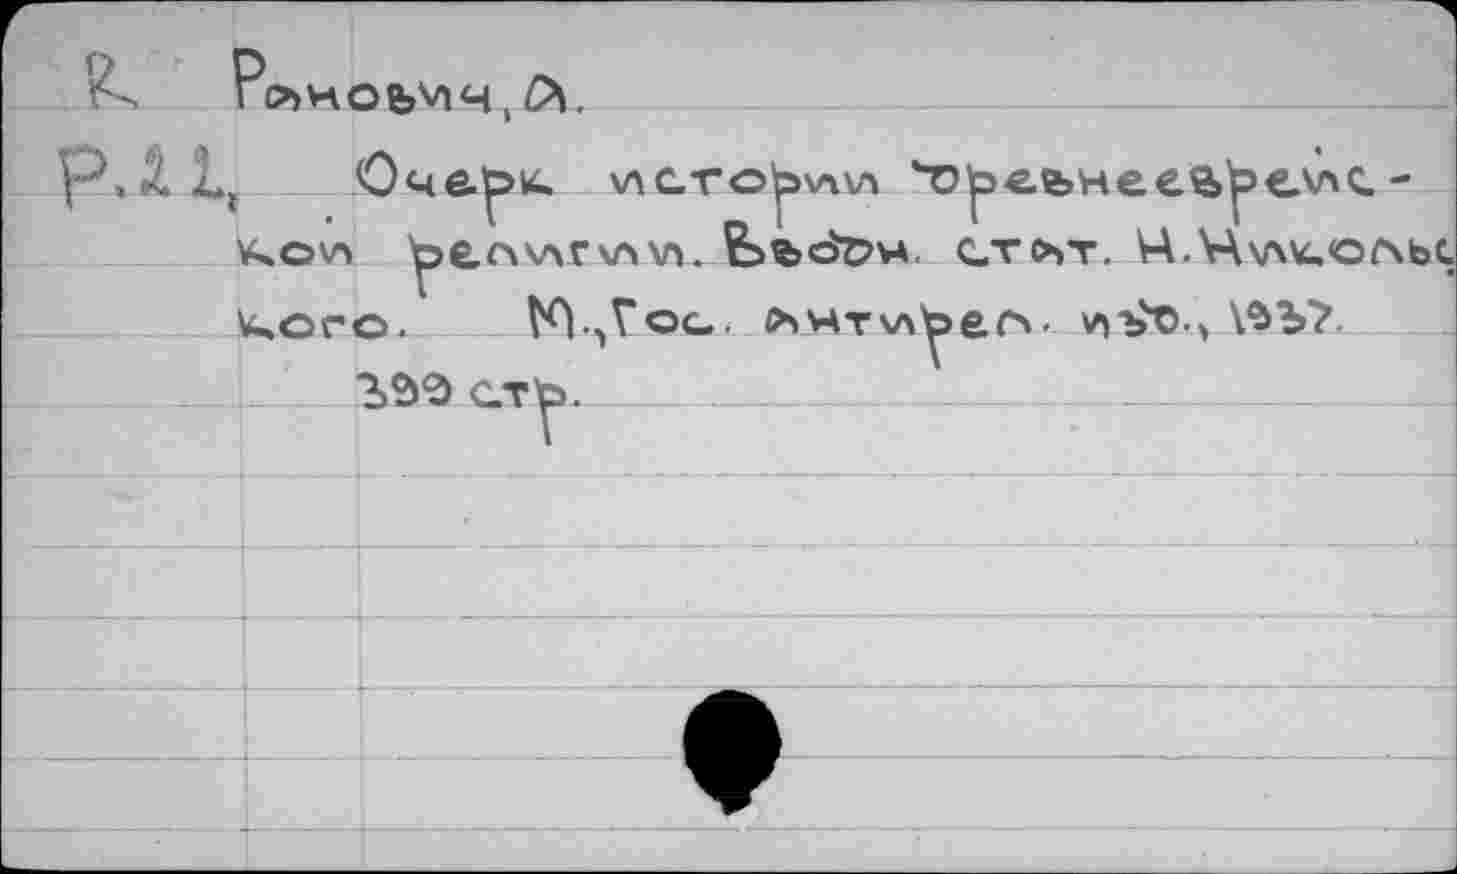 R Ранович, А.
P.11, Очерк истории древнееврейс-
кой религии. Вводн. стат. Н.Никольс
кого. М.,Гос. антирел. изд.,
стр.